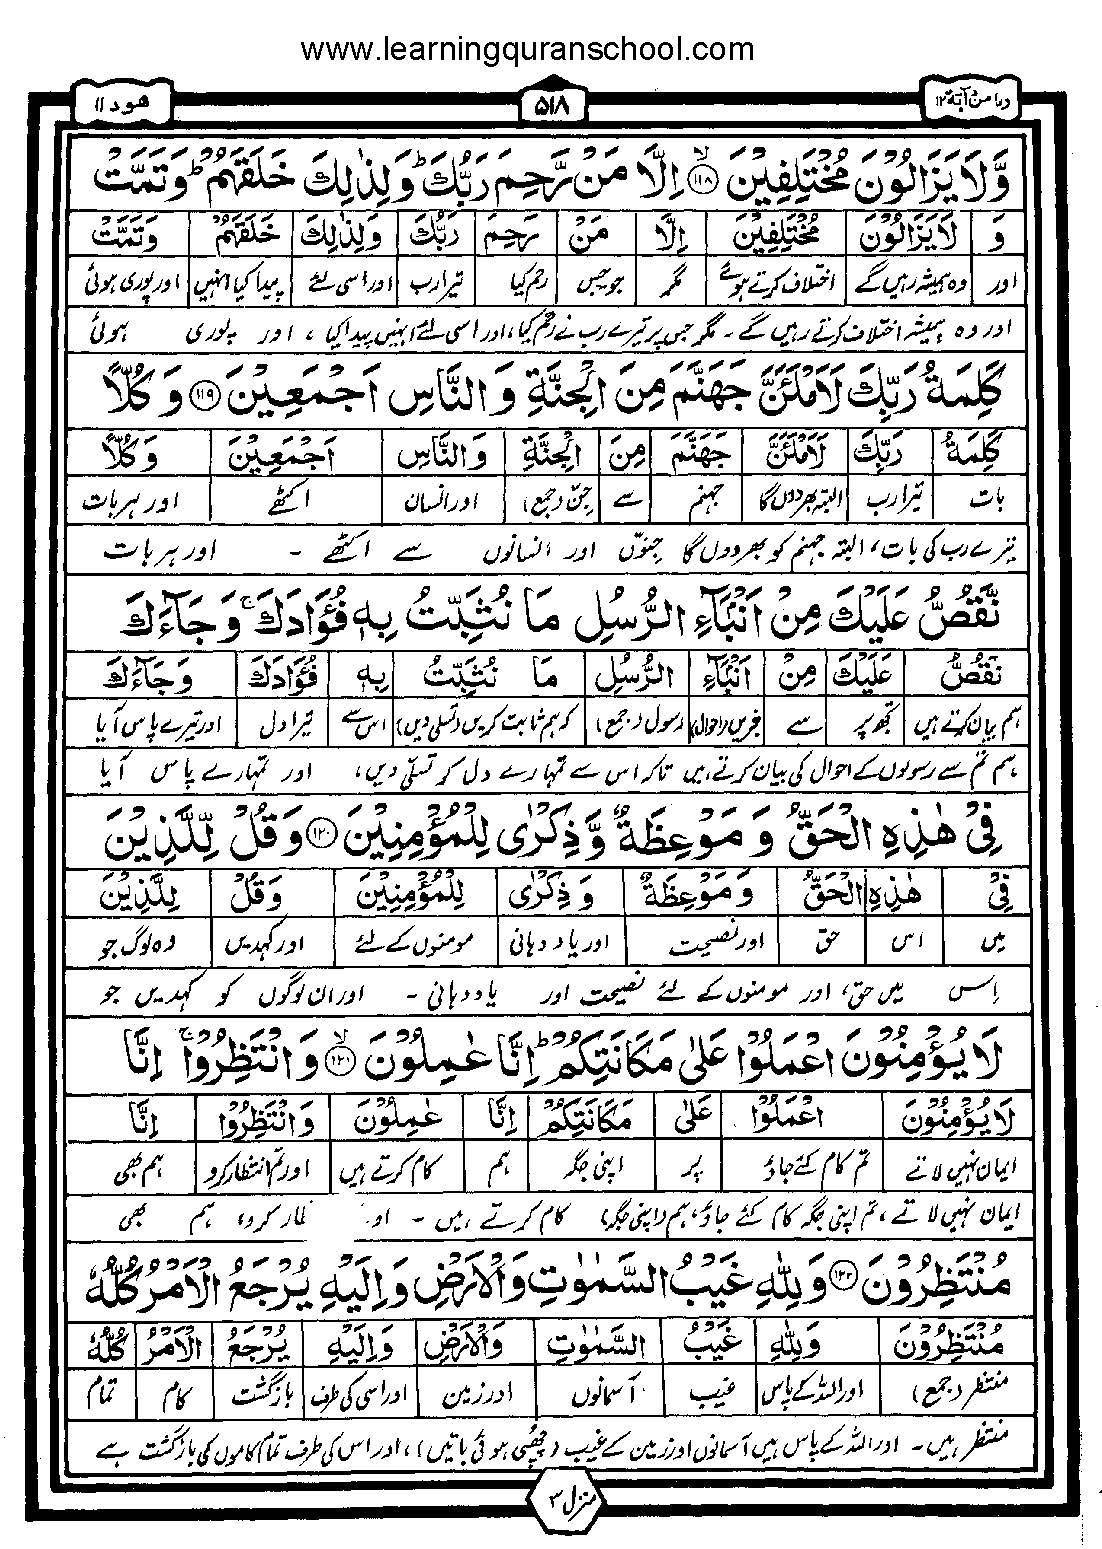 www.learningquranschool.com
ومامن دآبة ۱۲
۵۱۸
هود ۱۱
وَّلَا يَزَالُوْنَ مُخْتَلِفِيْنَ ۙ۱۱۸ اِلَّا مَنْ رَّحِمَ رَبُّكَ ؕ وَلِذٰلِكَ خَلَقَهُمْ ؕ وَتَمَّتْ
وَ لَايَزَالُوْنَ مُخْتَلِفِيْنَ اِلَّا مَنْ رَحِمَ رَبُّكَ وَلِذٰلِكَ خَلَقَهُمْ وَتَمَّتْ
اور وہ ہمیشہ رہیں گے اختلاف کرتے ہوئے مگر جو۔جس رحم کیا تیرا رب اور اسی لئے پیدا کیا انہیں اور پوری ہوئی
اور وہ ہمیشہ اختلاف کرتے رہیں گے ۔ مگر جس پر تیرے رب نے رحم کیا، اور اسی لئے انہیں پیدا کیا ، اور پوری ہوئی
كَلِمَةُ رَبِّكَ لَاَمْلَئَنَّ جَهَنَّمَ مِنَ الْجِنَّةِ وَ النَّاسِ اَجْمَعِيْنَ ۱۱۹ وَ كُلًّا
كَلِمَةُ رَبِّكَ لَاَمْلَئَنَّ جَهَنَّمَ مِنَ الْجِنَّةِ وَالنَّاسِ اَجْمَعِيْنَ وَكُلًّا
بات تیرا رب البتہ بھردوں گا جہنم سے جن (جمع) اور انسان اکٹھے اور ہر بات
تیرے رب کی بات، البتہ جہنم کو بھردوں گا جنّوں اور انسانوں سے اکٹھے ۔ اور ہر بات
نَّقُصُّ عَلَيْكَ مِنْ اَنْۢبَآءِ الرُّسُلِ مَا نُثَبِّتُ بِهٖ فُؤَادَكَ ۚ وَ جَآءَكَ
نَقُصُّ عَلَيْكَ مِنْ اَنْۢبَآءِ الرُّسُلِ مَا نُثَبِّتُ بِهٖ فُؤَادَكَ وَجَآءَكَ
ہم بیان کرتے ہیں تجھ پر سے خبریں (احوال) رسول (جمع) کہ ہم ثابت کریں (تسلی دیں) اس سے تیرا دل اور تیرے پاس آیا
ہم تم سے رسولوں کے احوال کی بیان کرتے ہیں تاکہ اس سے تمہارے دل کو تسلی دیں، اور تمہارے پاس آیا
فِيْ هٰذِهِ الْحَقُّ وَ مَوْعِظَةٌ وَّ ذِكْرٰى لِلْمُؤْمِنِيْنَ ۱۲۰ وَ قُلْ لِّلَّذِيْنَ
فِيْ هٰذِهِ الْحَقُّ وَ مَوْعِظَةٌ وَ ذِكْرٰى لِلْمُؤْمِنِيْنَ وَقُلْ لِلَّذِيْنَ
میں اس حق اور نصیحت اور یاد دہانی مومنوں کے لئے اور کہدیں وہ لوگ جو
اِس میں حق، اور مومنوں کے لئے نصیحت اور یاد دہانی ۔ اور ان لوگوں کو کہدیں جو
لَا يُؤْمِنُوْنَ اعْمَلُوْا عَلٰى مَكَانَتِكُمْ ؕ اِنَّا عٰمِلُوْنَ ۙ۱۲۱ وَ انْتَظِرُوْا ۚ اِنَّا
لَايُؤْمِنُوْنَ اعْمَلُوْا عَلٰى مَكَانَتِكُمْ اِنَّا عٰمِلُوْنَ وَانْتَظِرُوْا اِنَّا
ایمان نہیں لاتے تم کام کئے جاؤ پر اپنی جگہ ہم کام کرتے ہیں اور تم انتظار کرو ہم بھی
ایمان نہیں لاتے ، تم اپنی جگہ کام کئے جاؤ، ہم (اپنی جگہ) کام کرتے ہیں ۔ کرو، ہم بھی
مُنْتَظِرُوْنَ ۱۲۲ وَ لِلّٰهِ غَيْبُ السَّمٰوٰتِ وَالْاَرْضِ وَ اِلَيْهِ يُرْجَعُ الْاَمْرُ كُلُّهٗ
مُنْتَظِرُوْنَ وَلِلّٰهِ غَيْبُ السَّمٰوٰتِ وَالْاَرْضِ وَاِلَيْهِ يُرْجَعُ الْاَمْرُ كُلُّهٗ
منتظر (جمع) اور اللہ کے پاس غیب آسمانوں اور زمین اور اسی کی طرف بازگشت کام تمام
منتظر ہیں ۔ اور اللہ کے پاس ہیں آسمانوں اور زمین کے غیب (چھپی ہوئی باتیں)، اور اس کی طرف تمام کاموں کی بازگشت ہے
منزل ۳